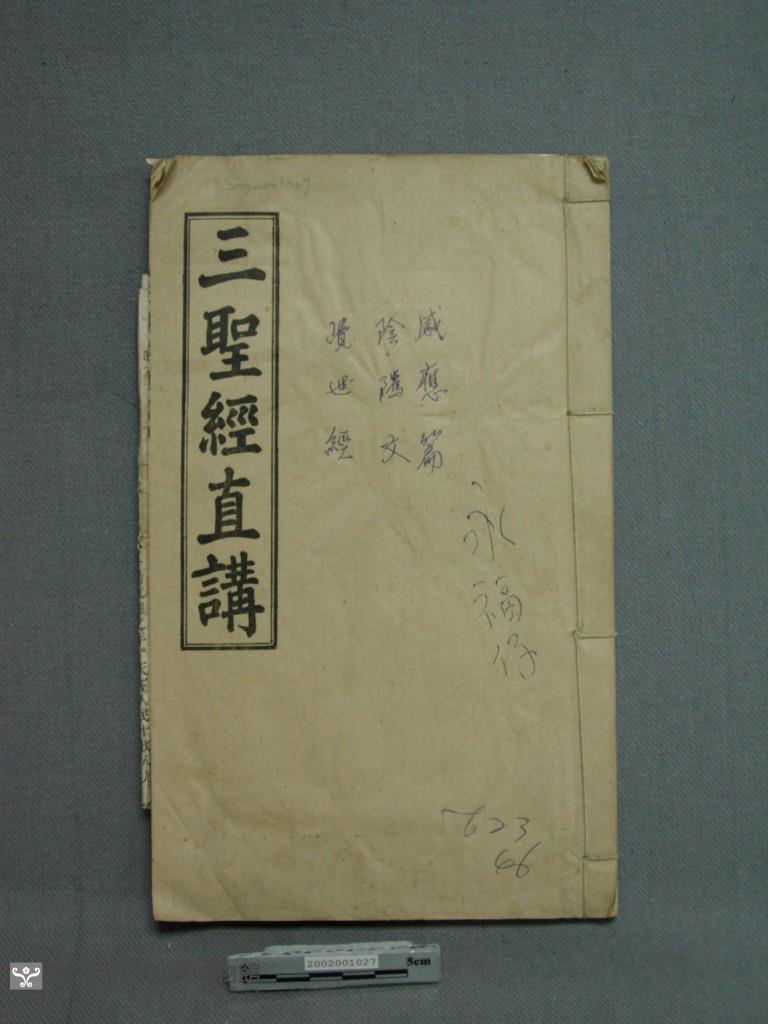 三聖經直講
感應篇
陰隲文
覺世經
永福存
7623
46
2002001027
2002001027
5cm